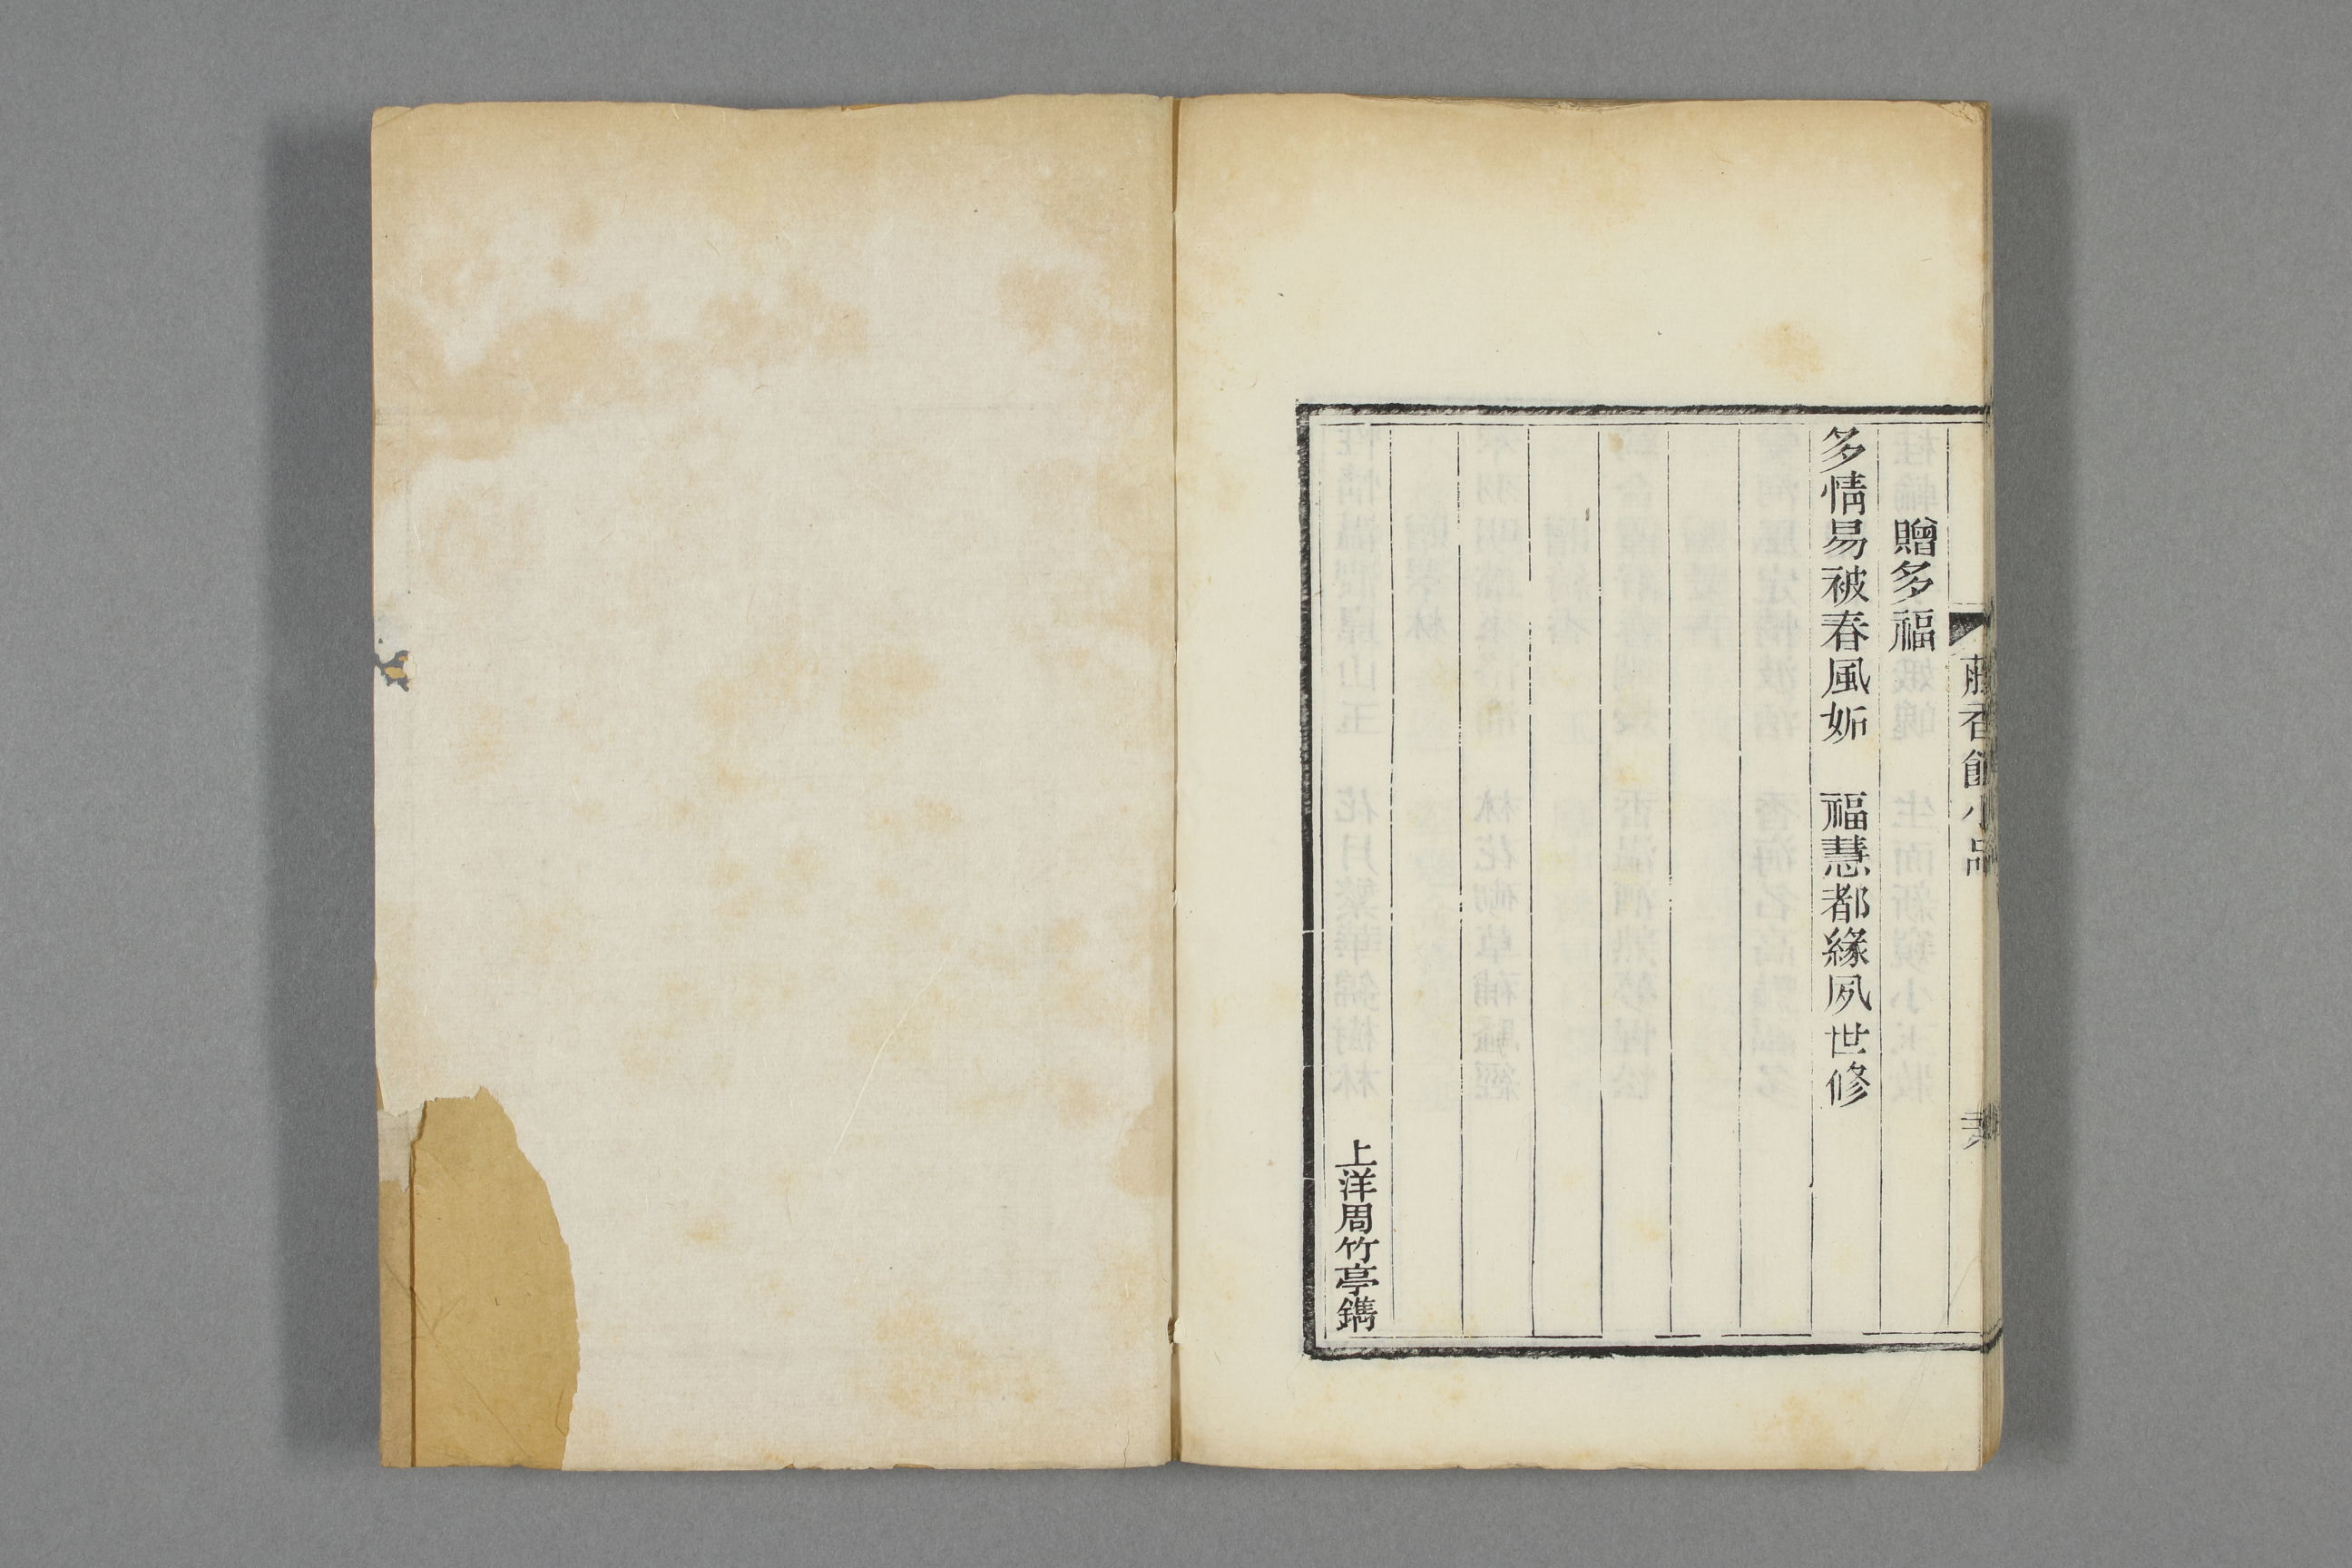 贈多福
多情易被春風妬　福慧都緣夙世修
上洋周竹亭鐫
藤香館小品